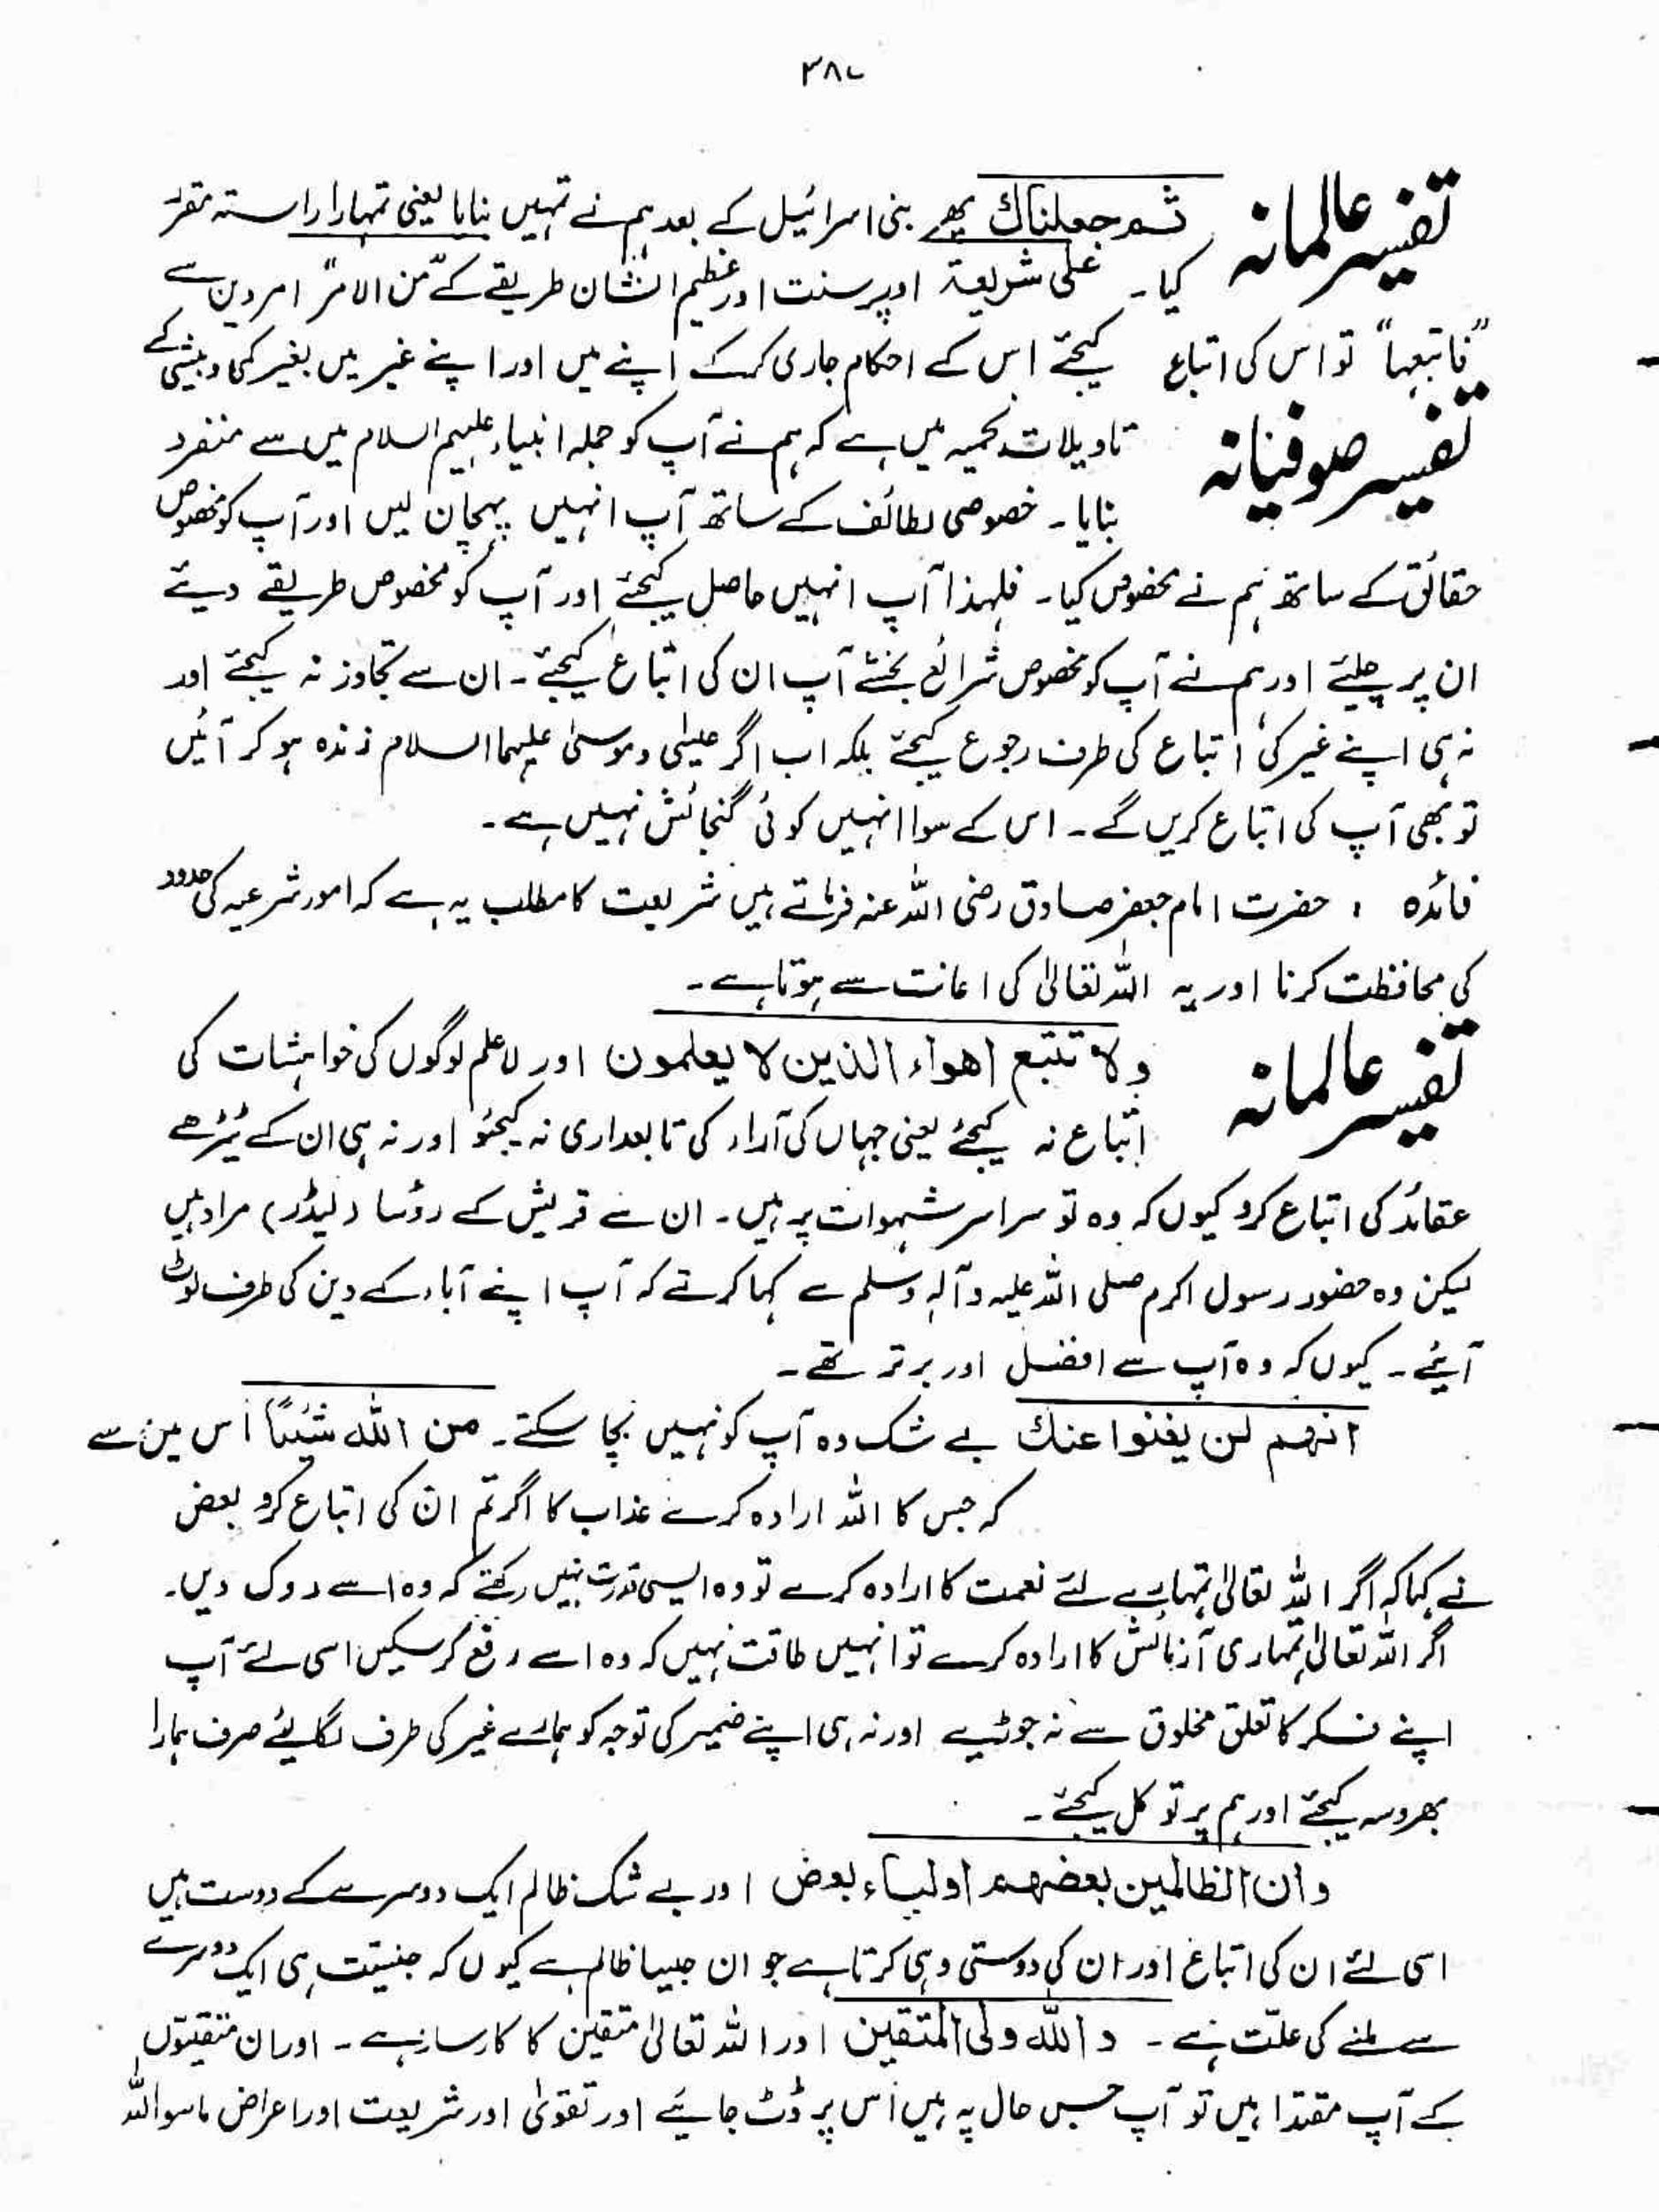 ۳۸۷
تفسیر عالمانہ ثم جعلناك پھر بنی اسرائیل کے بعد ہم نے تمہیں بنایا یعنی تمہارا راستہ مقرر
کیا۔ علی شریعۃ اوپر سنت اور عظیم الشان طریقے کے "من الامر" امر دین سے
"فاتبعہا" تو اس کی اتباع کیجئے اس کے احکام جاری کرکے اپنے میں اور اپنے غیر میں بغیر کمی و بیشی کے
تفسیر صوفیانہ تاویلات نجمیہ میں ہے کہ ہم نے آپ کو جملہ انبیاء علیہم السلام میں سے منفرد
بنایا۔ خصوصی لطائف کے ساتھ آپ انہیں پہچان لیں اور آپ کو مخصوص
حقائق کے ساتھ ہم نے مخصوص کیا۔ فلہذا آپ انہیں حاصل کیجئے اور آپ کو مخصوص طریقے دیئے
ان پر چلیئے اور ہم نے آپ کو مخصوص شرائع بخشے آپ ان کی اتباع کیجئے۔ ان سے تجاوز نہ کیجئے اور
نہ ہی اپنے غیر کی اتباع کی طرف رجوع کیجئے بلکہ اب اگر عیسٰی و موسیٰ علیہما السلام زندہ ہو کر آئیں
تو بھی آپ کی اتباع کریں گے۔ اس کے سوا انہیں کوئی گنجائش نہیں ہے۔
فائدہ : حضرت امام جعفر صادق رضی اللہ عنہ فرماتے ہیں شریعت کا مطلب یہ ہے کہ امور شرعیہ کی حدود
کی محافظت کرنا اور یہ اللہ تعالیٰ کی اعانت سے ہوتا ہے۔
تفسیر عالمانہ ولا تتبع اھواء الذین لا یعلمون اور لا علم لوگوں کی خواہشات کی
اتباع نہ کیجئے یعنی جہاں کی آراء کی تابعداری نہ کیجئو اور نہ ہی ان کے ٹیڑھے
عقائد کی اتباع کرو کیوں کہ وہ تو سراسر شہوات پر ہیں۔ ان سے قریش کے روٗسا (لیڈر) مراد ہیں
لیکن وہ حضور رسول اکرم صلی اللہ علیہ وآلہ وسلم سے کہا کرتے کہ آپ اپنے آباء کے دین کی طرف لوٹ
آیئے۔ کیوں کہ وہ آپ سے افضل اور برتر تھے۔
انھم لن یغنوا عنك بے شک وہ آپ کو نہیں بچا سکتے۔ من اللہ شیئاً اس میں سے
کہ جس کا اللہ ارادہ کرے عذاب کا اگر تم ان کی اتباع کرو بعض
نے کہا کہ اگر اللہ تعالیٰ تمہارے لئے نعمت کا ارادہ کرے تو وہ ایسی قدرت نہیں رکھتے کہ وہ اسے روک دیں۔
اگر اللہ تعالیٰ تمہاری آزمائش کا ارادہ کرے تو انہیں طاقت نہیں کہ وہ اسے رفع کر سکیں اسی لئے آپ
اپنے فکر کا تعلق مخلوق سے نہ جوڑیے اور نہ ہی اپنے ضمیر کی توجہ کو ہمارے غیر کی طرف لگایئے صرف ہمارا
بھروسہ کیجئے اور ہم پر توکل کیجئے۔
وان الظالمین بعضھم اولیاء بعض اور بے شک ظالم ایک دوسرے کے دوست ہیں
اسی لئے ان کی اتباع اور ان کی دوستی وہی کرتا ہے جو ان جیسا ظالم ہے کیوں کہ جنسیّت ہی ایک دوسرے
سے ملنے کی علّت ہے۔ واللہ ولی المتقین اور اللہ تعالیٰ متقین کا کارساز ہے۔ اور ان متقیّوں
کے آپ مقتدا ہیں تو آپ جس حال پہ ہیں اس پر ڈٹ جایئے اور تقویٰ اور شریعت اور اعراض ماسوا اللہ